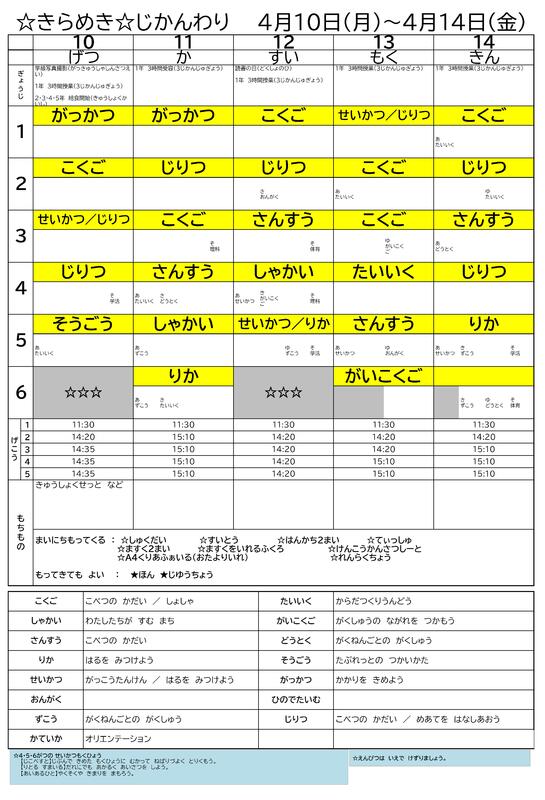 ☆きらめき☆じかんわり　4月10日(月)～4月14日(金)
10 11 12 13 14
げつ か すい もく きん
ぎょうじ
学級写真撮影(がっきゅうしゃしんさつえい)
1年 3時間授業(3じかんじゅぎょう)
2・3・4・5年 給食開始(きゅうしょくかいし)
1年 3時間授業(3じかんじゅぎょう)
読書の日(どくしょのひ)
1年 3時間授業(3じかんじゅぎょう)
1年 3時間授業(3じかんじゅぎょう)
1年 3時間授業(3じかんじゅぎょう)
1 がっかつ がっかつ こくご せいかつ／じりつ こくご
あ
たいいく
2 こくご じりつ じりつ こくご じりつ
さ あ ゆ
おんがく たいいく たいいく
3 せいかつ／じりつ こくご さんすう こくご さんすう
そ そ ゆ あ
理科 体育 がいこくご どうとく
4 じりつ さんすう しゃかい たいいく じりつ
そ あ さ あ さ そ
学活 たいいく どうとく せいかつ がいこくご 理科
5 そうごう しゃかい せいかつ／りか さんすう りか
あ あ ゆ そ あ ゆ あ さ そ
たいいく ずこう ずこう 学活 せいかつ おんがく せいかつ ずこう 学活
6 ☆☆☆ りか ☆☆☆ がいこくご
あ さ さ ゆ そ
ずこう たいいく ずこう どうとく 体育
げこう
1 11:30 11:30 11:30 11:30 11:30
2 14:20 15:10 14:20 14:20 14:20
3 14:35 15:10 14:20 14:20 15:10
4 14:35 15:10 14:20 15:10 15:10
5 14:35 15:10 14:20 15:10 15:10
もちもの
きゅうしょくせっと など
まいにちもってくる ： ☆しゅくだい ☆すいとう ☆はんかち2まい ☆てぃっしゅ
☆ますく2まい ☆ますくをいれるふくろ ☆けんこうかんさつしーと
☆A4くりあふぁいる(おたよりいれ) ☆れんらくちょう
もってきても よい ： ★ほん ★じゆうちょう
こくご こべつの かだい ／ しょしゃ たいいく からだつくりうんどう
しゃかい わたしたちが すむ まち がいこくご がくしゅうの ながれを つかもう
さんすう こべつの かだい どうとく がくねんごとの がくしゅう
りか はるを みつけよう そうごう たぶれっとの つかいかた
せいかつ がっこうたんけん ／ はるを みつけよう がっかつ かかりを きめよう
おんがく ひのでたいむ
ずこう がくねんごとの がくしゅう じりつ こべつの かだい ／ めあてを はなしあおう
かていか オリエンテーション
☆4・5・6がつの せいかつもくひょう
【じこべすと】じぶんで きめた もくひょうに むかって ねばりづよく とりくもう。
【りとる すまいる】だれにでも あかるく あいさつを しよう。
【あいあるひと】やくそくや きまりを まもろう。
☆えんぴつは いえで けずりましょう。